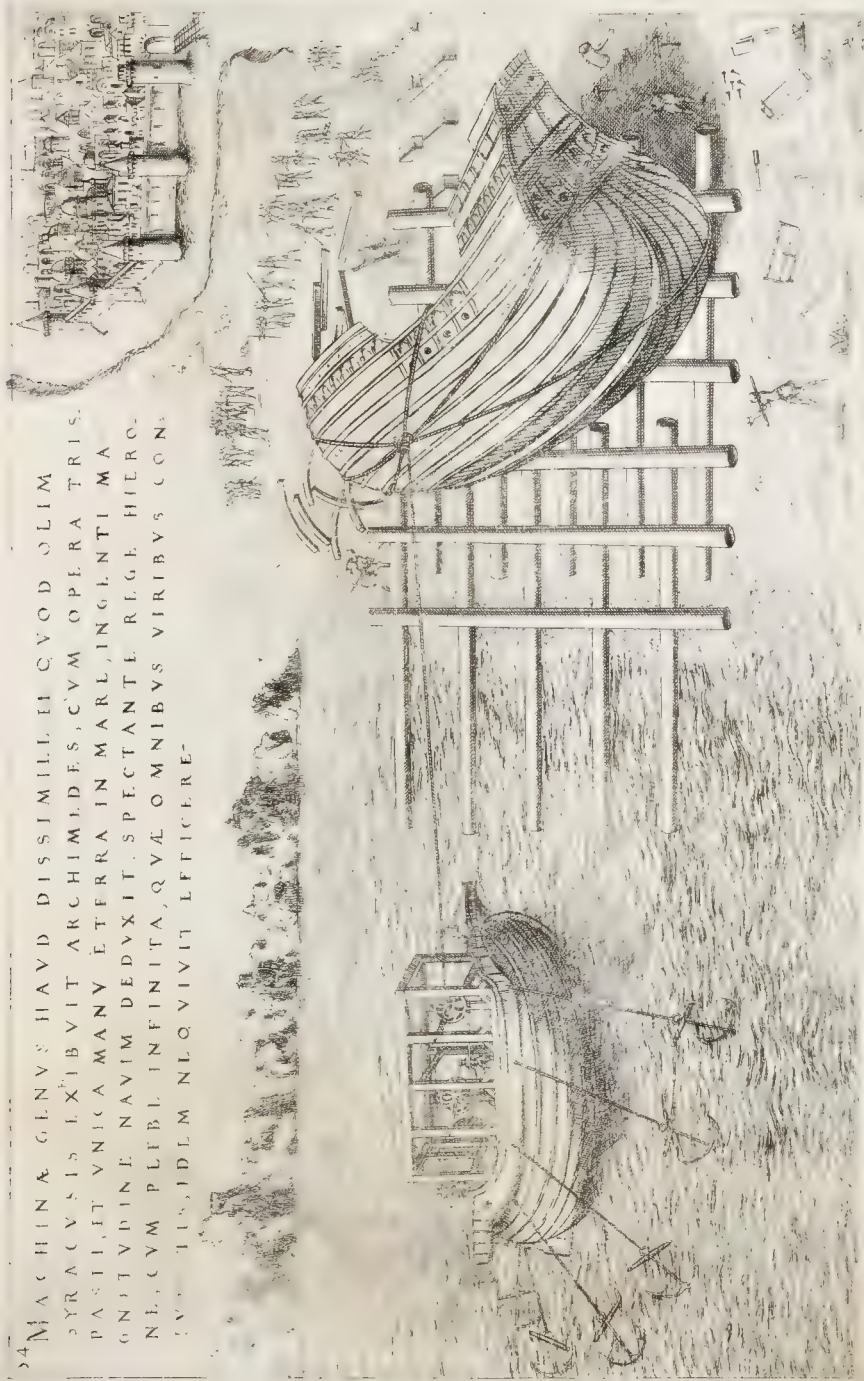 54
MACHINÆ GENVS HAVD DISSIMILE EI QVOD OLIM
SYRACVSIS EXIBVIT ARCHIMEDES, CVM OPERA TRIS.
PASTI, ET VNICA MANV È TERRA IN MARE, INGENTI MA
GNITVDINE NAVIM DEDVXIT. SPECTANTE REGE HIERO.
NE, CVM PLEBE INFINITA, QVÆ OMNIBVS VIRIBVS CON.
IDEM NEQVIVIT EFFICERE-